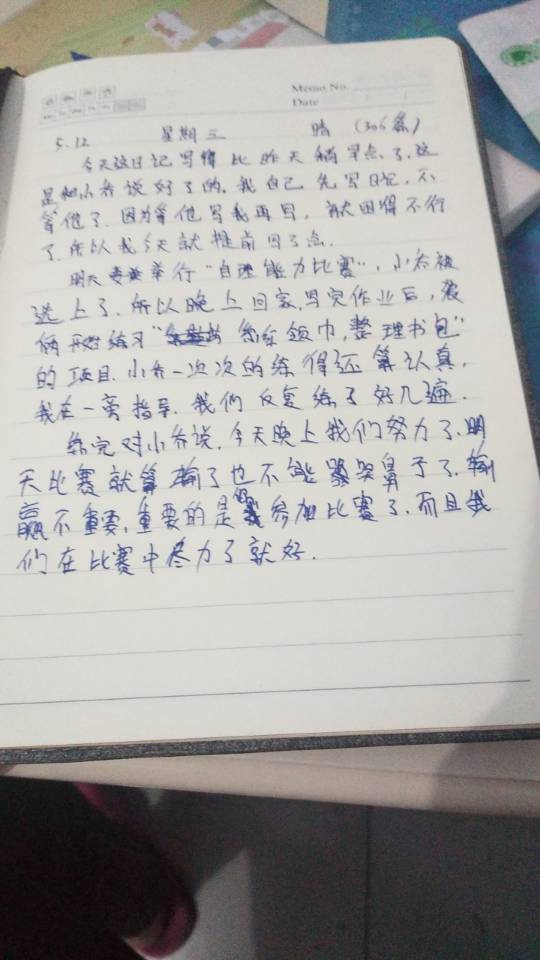 Memo No.
Date
5.12 星期三 晴 (306篇)
今天这日记写得比昨天稍早点了,这
是和小乔说好了的,我自己先写日记,不
等他了.因为等他写我再写,就困得不行
了.所以我今天就提前写了点.
明天要举行“自理能力比赛”,小乔被
选上了.所以晚上回家,写完作业后,我
俩开始练习“系红领巾,整理书包”
的项目.小乔一次次的练得还算认真,
我在一旁指导.我们反复练了好几遍.
练完对小乔说,今天晚上我们努力了.明
天比赛就算输了也不能哭鼻子了.输
赢不重要,重要的是参加比赛了.而且我
们在比赛中尽力了就好.